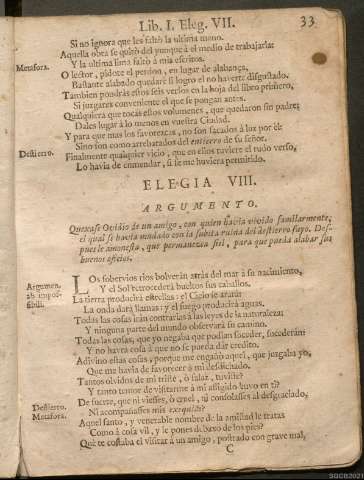 Lib. I. Eleg. VII. 33
Si no ignora que les faltò la ultima mano.
Aquella obra se quitò del yunque à el medio de trabajarla:
Metafora. Y la ultima lima faltò à mis escritos.
O lector, pidote el perdon, en lugar de alabança,
Bastante alabado quedarè si logro el no haverte disgustado.
Tambien pondràs estos seis versos en la hoja del libro primero,
Si juzgares conveniente el que se pongan antes.
Qualquiera que tocas estos volumenes, que quedaron sin padre;
Dales lugar à lo menos en vuestra Ciudad.
Y para que mas los favorezcas, no son sacados à luz por èl:
Destierro. Sino son como arrebatados del entierro de su señor.
Finalmente qualquier vicio, que en ellos tuviere el rudo verso,
Lo havia de enmendar, si se me huviera permitido.
ELEGIA VIII.
ARGUMENTO.
Quexase Ovidio de un amigo, con quien havia vivido familiarmente,
el qual se havia mudado con la subita ruina del destierro suyo. Des-
pues le amonesta, que permanezca fiel, para que pueda alabar sus
buenos oficios.
Argumen. LOs sobervios rios bolveràn atràs del mar à su nacimiento,
ab impos- Y el Sol retrocederà bueltos sus cavallos.
sibili. La tierra producirà estrellas: el Cielo se ararà:
La onda darà llamas: y el fuego producirà aguas.
Todas las cosas iràn contrarias à las leyes de la naturaleza:
Y ninguna parte del mundo observarà su camino.
Todas las cosas, que yo negaba que podian suceder, sucederàn:
Y no havrà cosa à que no se pueda dàr credito.
Adivino estas cosas, porque me engañò aquel, que juzgaba yo,
Que me havia de favorecer à mi desdichado.
Tantos olvidos de mi triste, ò falàz, tuviste?
Y tanto temor de visitarme à mi afligido huvo en ti?
De suerte, que ni viesses, ò cruel, ni consolasses al desgraciado,
Destierro. Ni acompañasses mis exequias?
Metafora. Aquel santo, y venerable nombre de la amistad le tratas
Como à cosa vil, y le pones debaxo de los pies?
Què te costaba el visitar à un amigo, postrado con grave mal,
C
SGCB2021